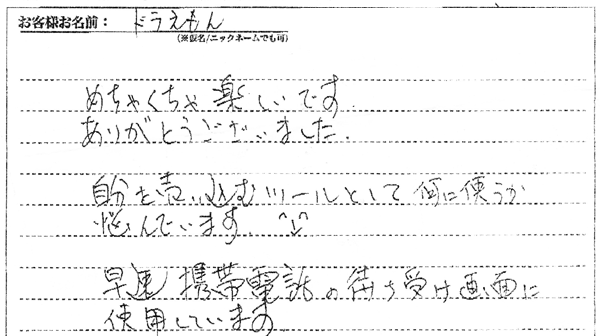 お客様お名前： ドラえもん
(※仮名/ニックネームでも可)
めちゃくちゃ楽しいです
ありがとうございました.
自分を売り込むツールとして何に使うか
悩んでいます ^⌄^
早速 携帯電話の待ち受け画面に
使用しています